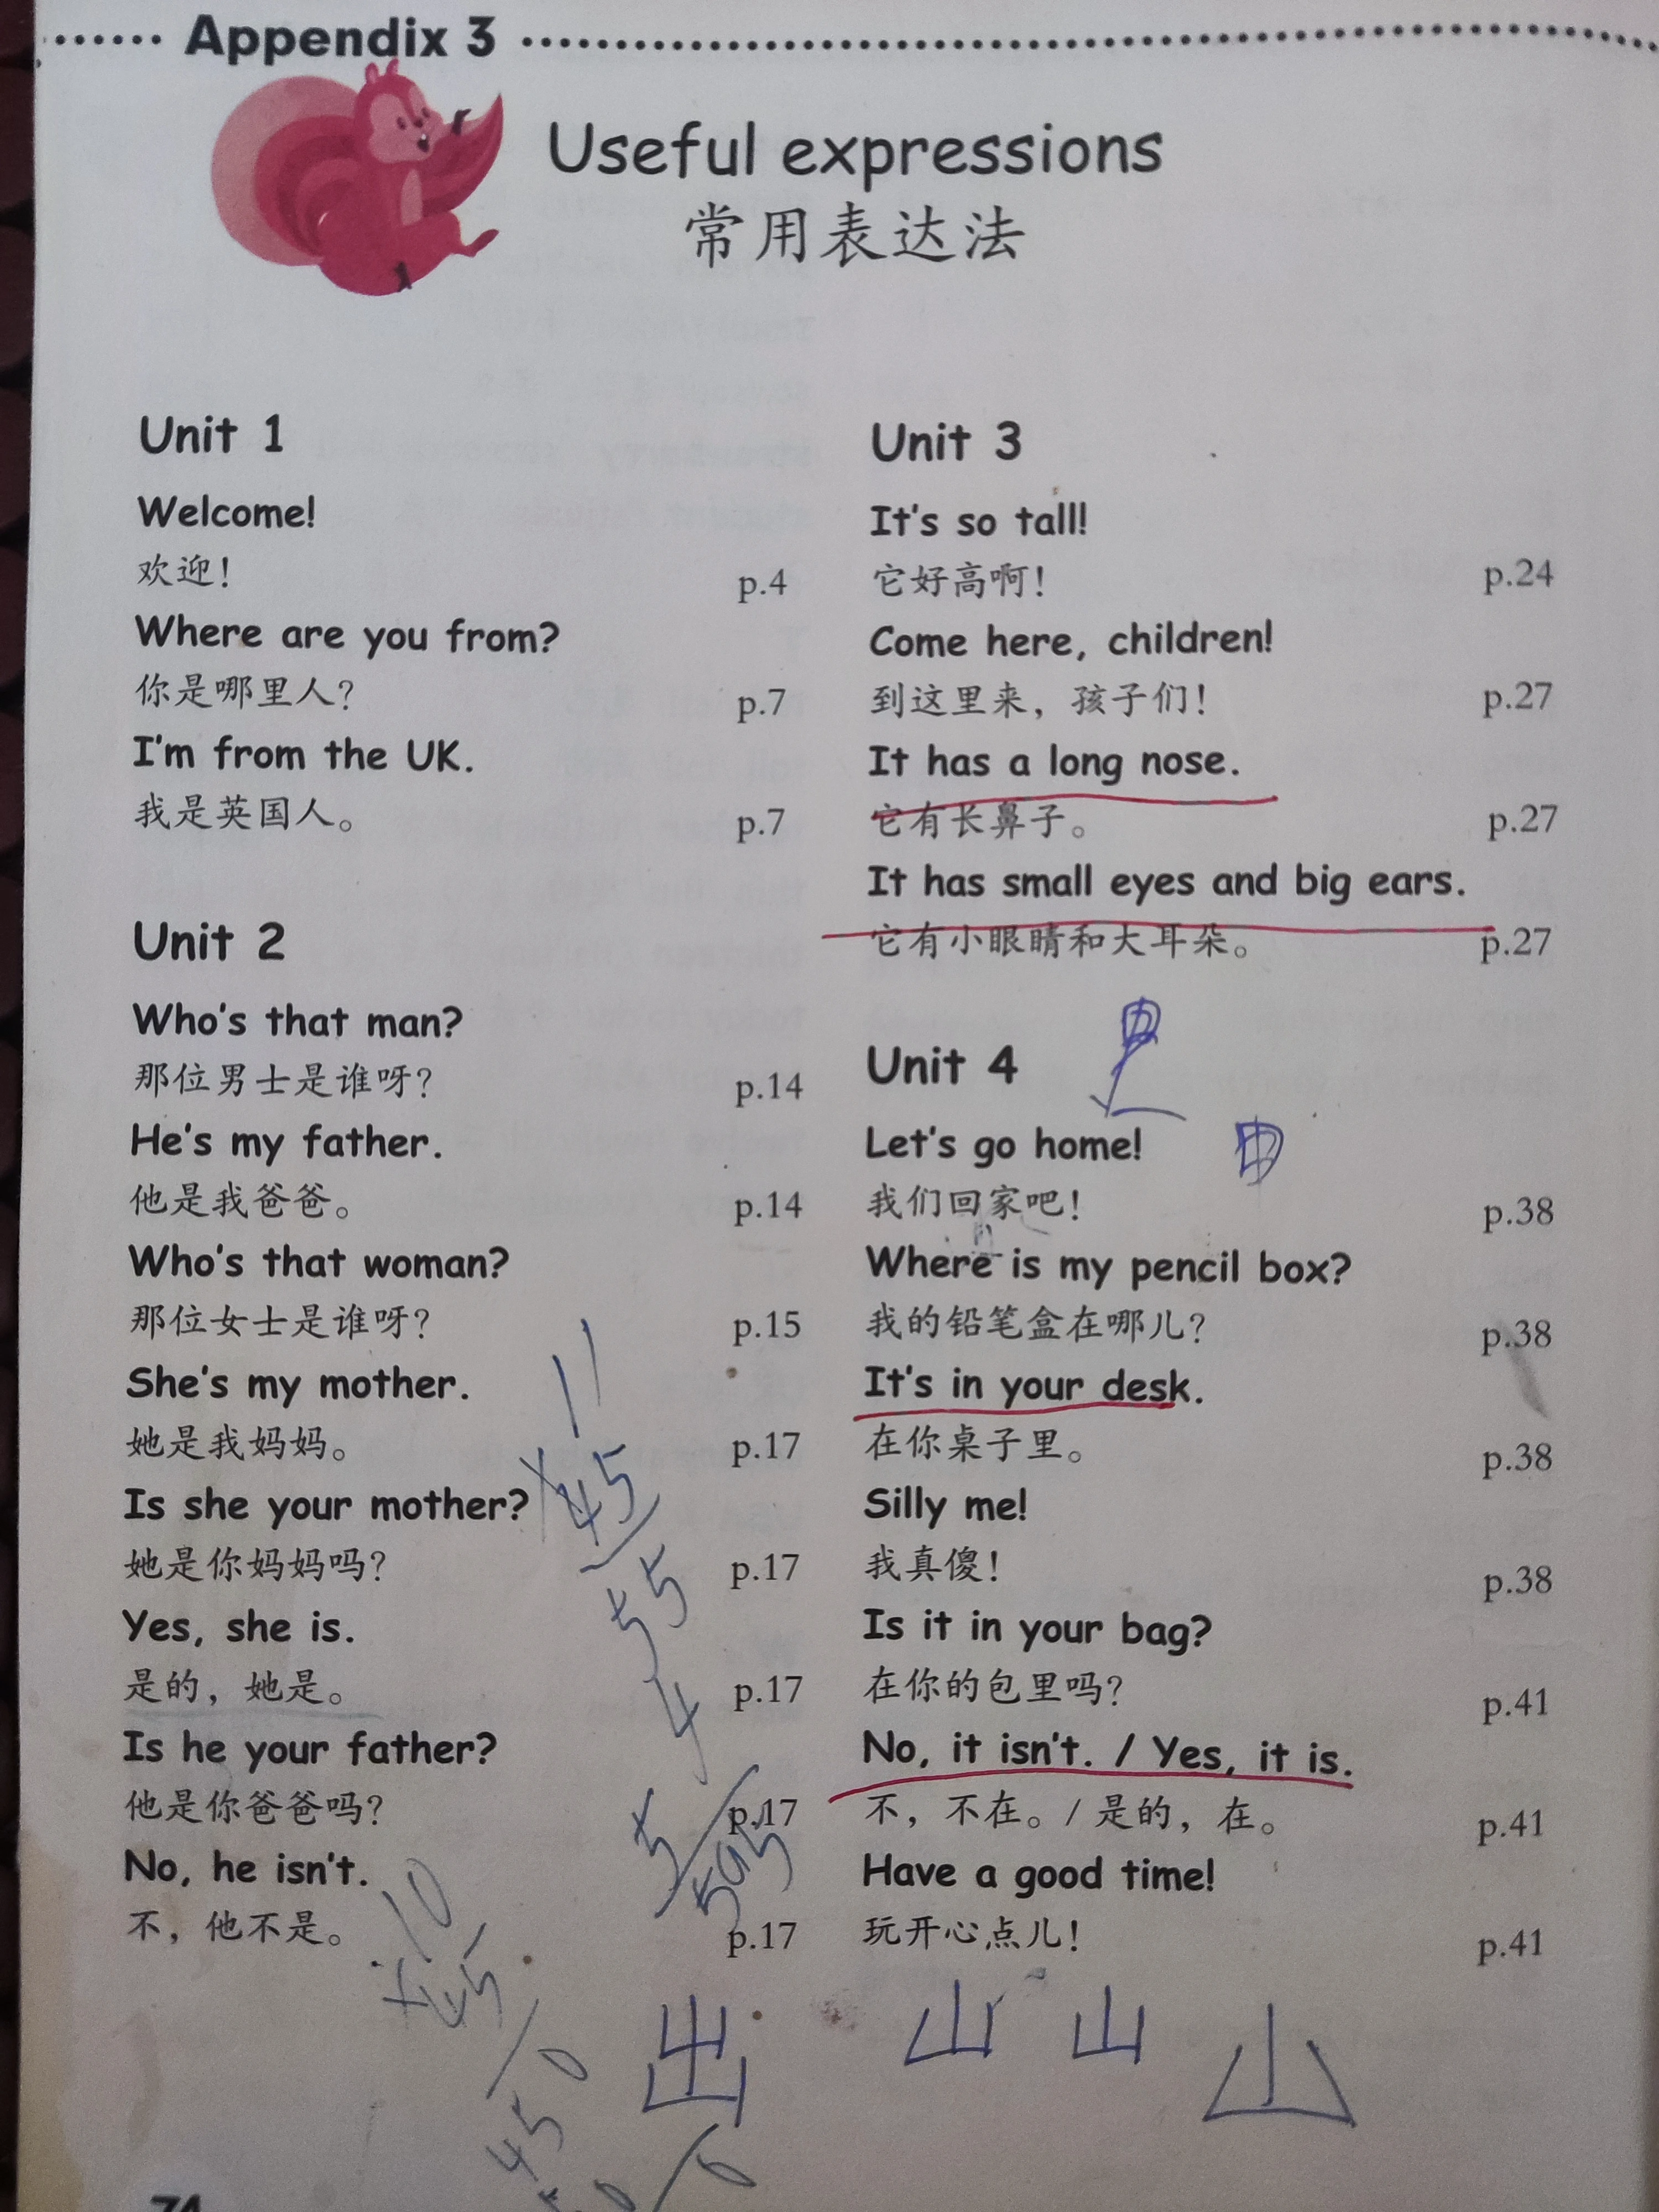 Appendix 3
Useful expressions
常用表达法
Unit 1
Welcome!
欢迎! p.4
Where are you from?
你是哪里人? p.7
I'm from the UK.
我是英国人。 p.7
Unit 2
Who's that man?
那位男士是谁呀? p.14
He's my father.
他是我爸爸。 p.14
Who's that woman?
那位女士是谁呀? p.15
She's my mother.
她是我妈妈。 p.17
Is she your mother?
她是你妈妈吗? p.17
Yes, she is.
是的，她是。 p.17
Is he your father?
他是你爸爸吗? p.17
No, he isn't.
不，他不是。 p.17
Unit 3
It's so tall!
它好高啊! p.24
Come here, children!
到这里来，孩子们! p.27
It has a long nose.
它有长鼻子。 p.27
It has small eyes and big ears.
它有小眼睛和大耳朵。 p.27
Unit 4
Let's go home!
我们回家吧! p.38
Where is my pencil box?
我的铅笔盒在哪儿? p.38
It's in your desk.
在你桌子里。 p.38
Silly me!
我真傻! p.38
Is it in your bag?
在你的包里吗? p.41
No, it isn't. / Yes, it is.
不，不在。/ 是的，在。 p.41
Have a good time!
玩开心点儿! p.41
11
x 45
55
10
x 45
出 山 山 山
74